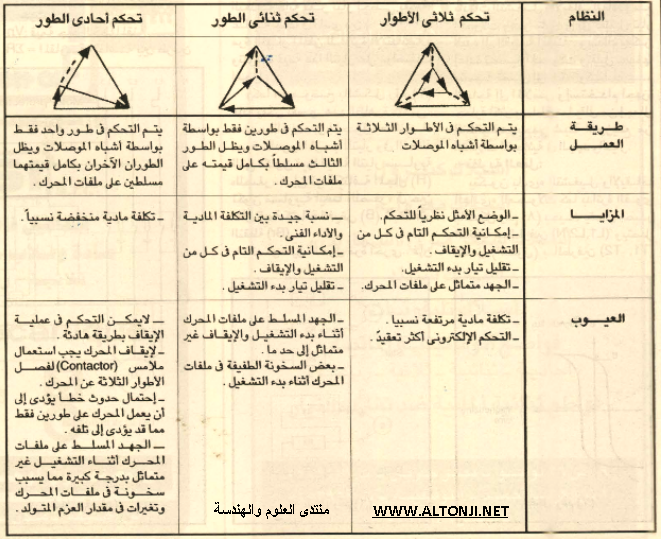 النظام
تحكم ثلاثى الأطوار
تحكم ثنائى الطور
تحكم أحادى الطور
طريقة
العمل
يتم التحكم فى الأطوار الثلاثة
بواسطة أشباه الموصلات
يتم التحكم فى طورين فقط بواسطة
أشباه الموصلات ويظل الطور
الثالث مسلطاً بكامل قيمته على
ملفات المحرك.
يتم التحكم فى طور واحد فقط
بواسطة أشباه الموصلات ويظل
الطوران الآخران بكامل قيمتهما
مسلطين على ملفات المحرك.
المزايا
ـ الوضع الأمثل نظرياً للتحكم.
ـ إمكانية التحكم التام فى كل من
التشغيل والإيقاف.
ـ تقليل تيار بدء التشغيل.
ـ الجهد متماثل على ملفات المحرك.
ـ نسبة جيدة بين التكلفة المادية
والأداء الفنى.
ـ إمكانية التحكم التام فى كل من
التشغيل والإيقاف.
ـ تقليل تيار بدء التشغيل.
ـ تكلفة مادية منخفضة نسبياً.
العيوب
ـ تكلفة مادية مرتفعة نسبيا.
ـ التحكم الإلكترونى أكثر تعقيدً.
ـ الجهد المسلط على ملفات المحرك
أثناء بدء التشغيل والإيقاف غير
متماثل إلى حد ما.
ـ بعض السخونة الطفيفة فى ملفات
المحرك أثناء بدء التشغيل.
ـ لايمكن التحكم فى عملية
الإيقاف بطريقة هادئة.
ـ لإيقاف المحرك يجب استعمال
ملامس (Contactor) لفصل
الأطوار الثلاثة عن المحرك.
ـ إحتمال حدوث خطأ يؤدى إلى
أن يعمل المحرك على طورين فقط
مما قد يؤدى إلى تلفه.
ـ الجهد المسلط على ملفات
المحرك أثناء التشغيل غير
متماثل بدرجة كبيرة مما يسبب
سخونة فى ملفات المحرك
وتغيرات فى مقدار العزم المتولد.
WWW.ALTONJI.NET
منتدى العلوم والهندسة